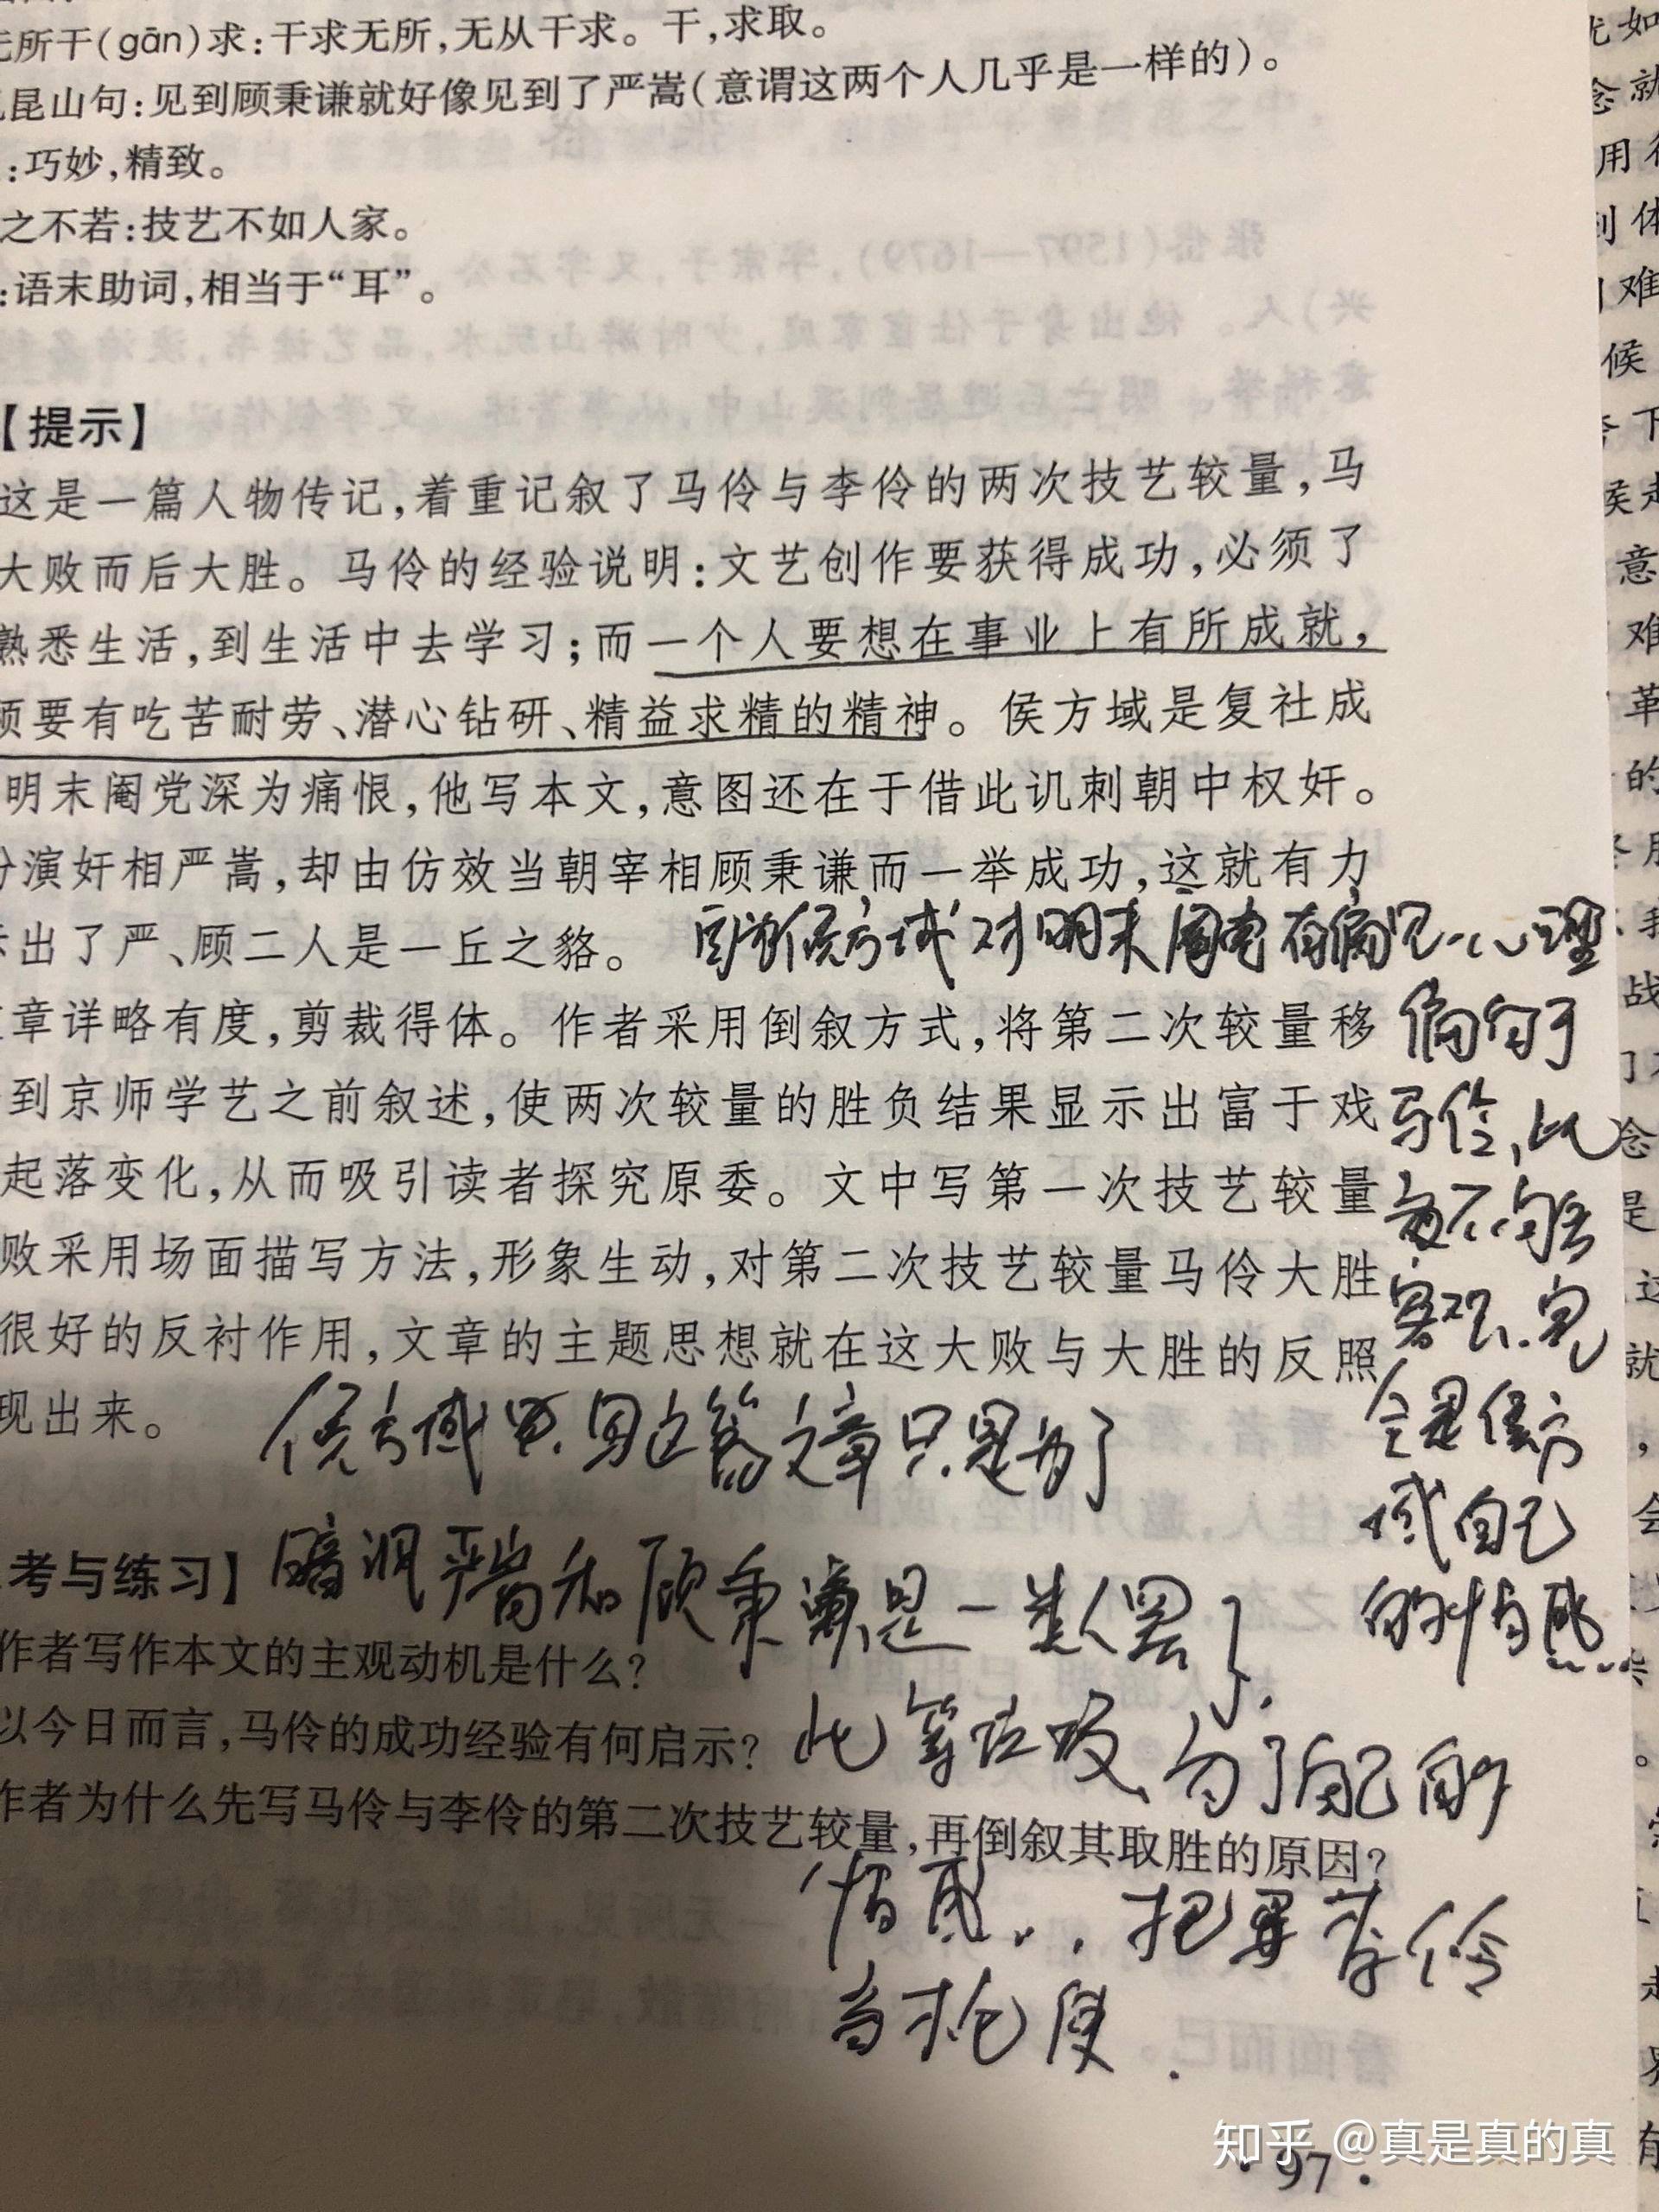 无所干(gān)求:干求无所,无从干求。干,求取。
昆山句:见到顾秉谦就好像见到了严嵩(意谓这两个人几乎是一样的)。
:巧妙,精致。
之不若:技艺不如人家。
:语末助词,相当于“耳”。
【提示】
这是一篇人物传记,着重记叙了马伶与李伶的两次技艺较量,马
大败而后大胜。马伶的经验说明:文艺创作要获得成功,必须了
熟悉生活,到生活中去学习;而一个人要想在事业上有所成就,
须要有吃苦耐劳、潜心钻研、精益求精的精神。侯方域是复社成
明末阉党深为痛恨,他写本文,意图还在于借此讥刺朝中权奸。
演奸相严嵩,却由仿效当朝宰相顾秉谦而一举成功,这就有力
出了严、顾二人是一丘之貉。
章详略有度,剪裁得体。作者采用倒叙方式,将第二次较量移
到京师学艺之前叙述,使两次较量的胜负结果显示出富于戏
起落变化,从而吸引读者探究原委。文中写第一次技艺较量
败采用场面描写方法,形象生动,对第二次技艺较量马伶大胜
很好的反衬作用,文章的主题思想就在这大败与大胜的反照
现出来。
考与练习】
作者写作本文的主观动机是什么?
以今日而言,马伶的成功经验有何启示?
作者为什么先写马伶与李伶的第二次技艺较量,再倒叙其取胜的原因?
因为侯方域对明末阉党有偏见,心理
偏向于
马伶,此
文不够
客观,完
全是侯方
域自己
的情感
侯方域写这篇文章只是为了
暗讽严嵩和顾秉谦是一类人罢了,
此等垃圾,为了自己的
情感,把李伶
当枪使.
·97·
知乎 @真是真的真